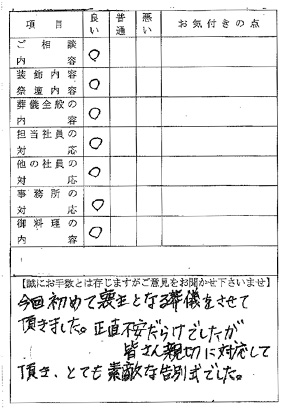 項目 良い 普通 悪い お気付きの点
ご相談内容 ○
装飾内容祭壇内容 ○
葬儀全般の内容 ○
担当社員の対応 ○
他の社員の対応 ○
事務所の対応 ○
御料理の内容 ○
【誠にお手数とは存じますがご意見をお聞かせ下さいませ】
今回初めて喪主となる葬儀をさせて
頂きました。正直不安だらけでしたが
皆さん親切に対応して
頂き、とても素敵な告別式でした。